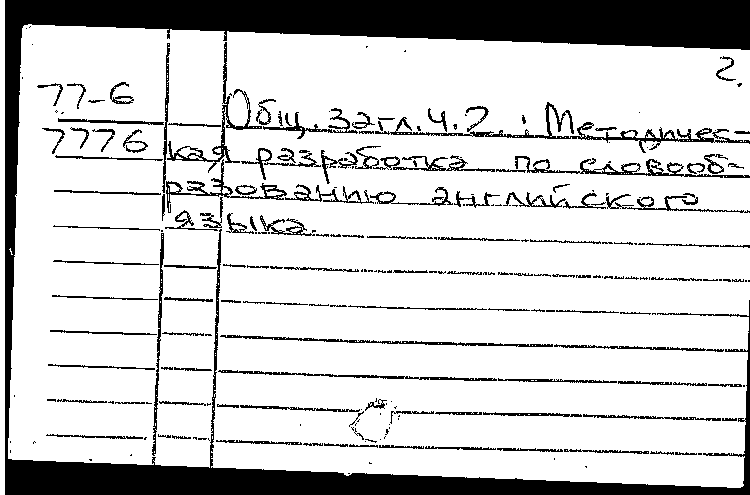 2.
77-6
Общ. загл. Ч. 2. : Методичес-
7776 кая разработка по словооб-
разованию английского
языка.